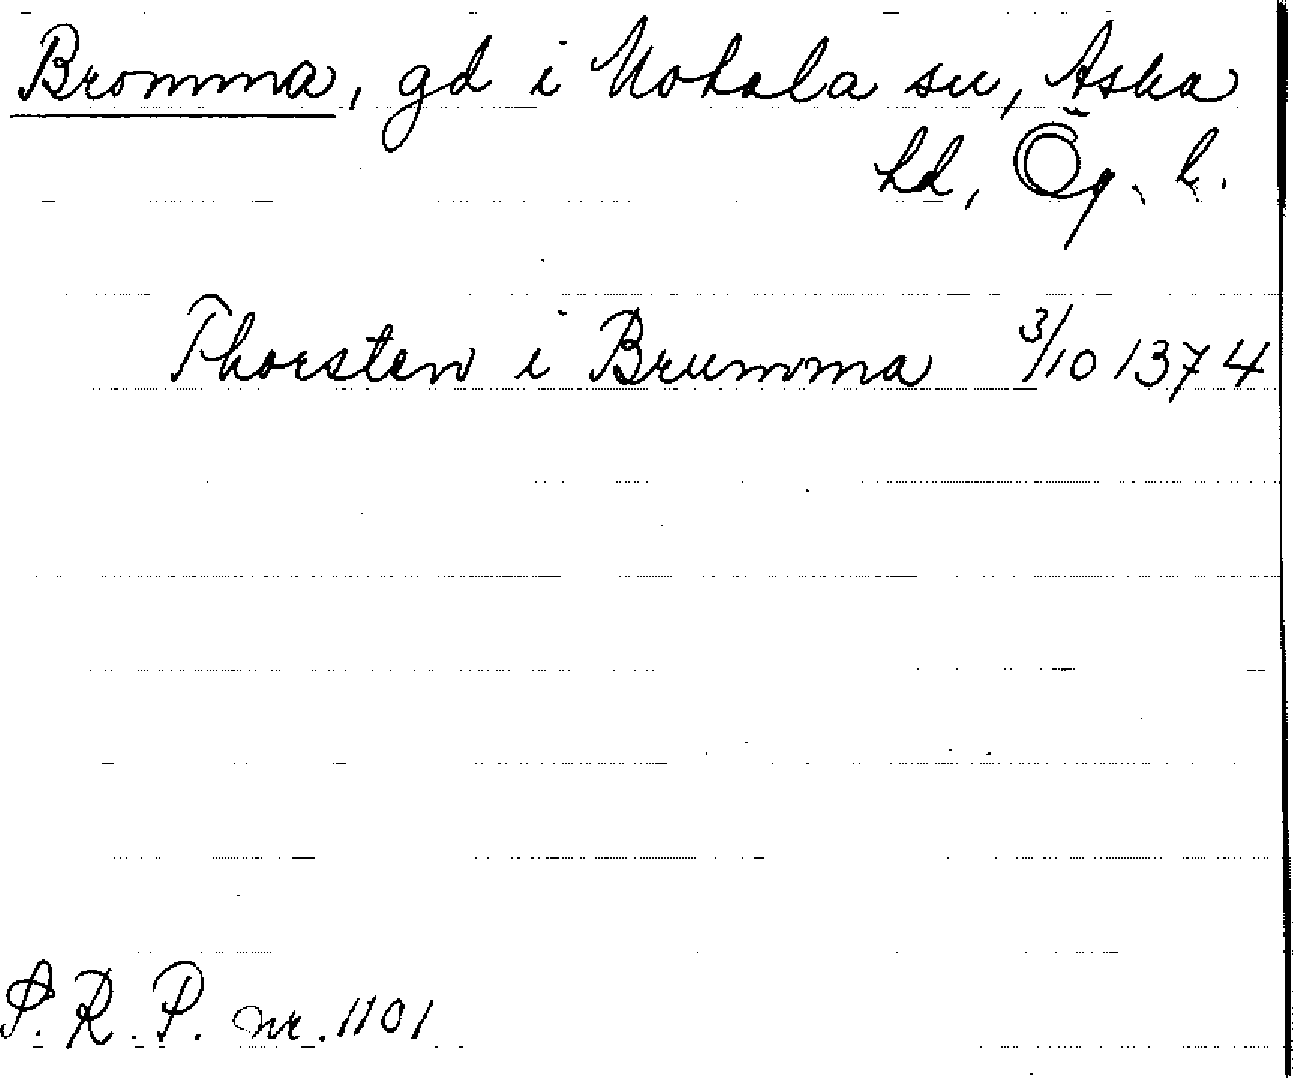 Bromma, gd i Motala sn, Aska
hd, Ög. l.
Thorsten i Brumma 3/10 1374
S. R. P. nr. 1101